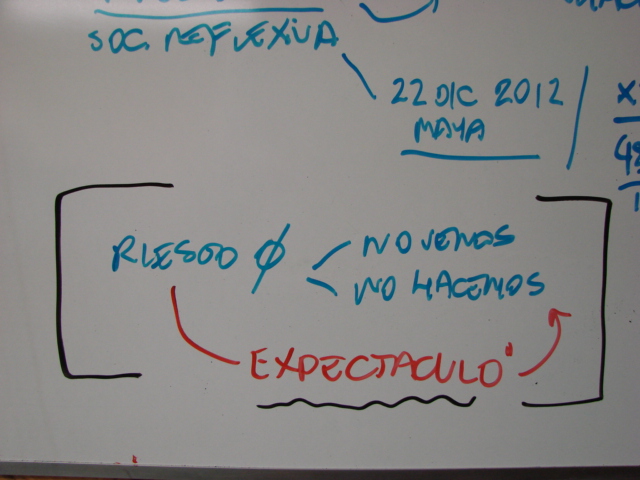 SOC. REFLEXIVA
22 DIC 2012
MAYA
RIESGO Ø
NO VEMOS
NO HACEMOS
EXPECTACULO